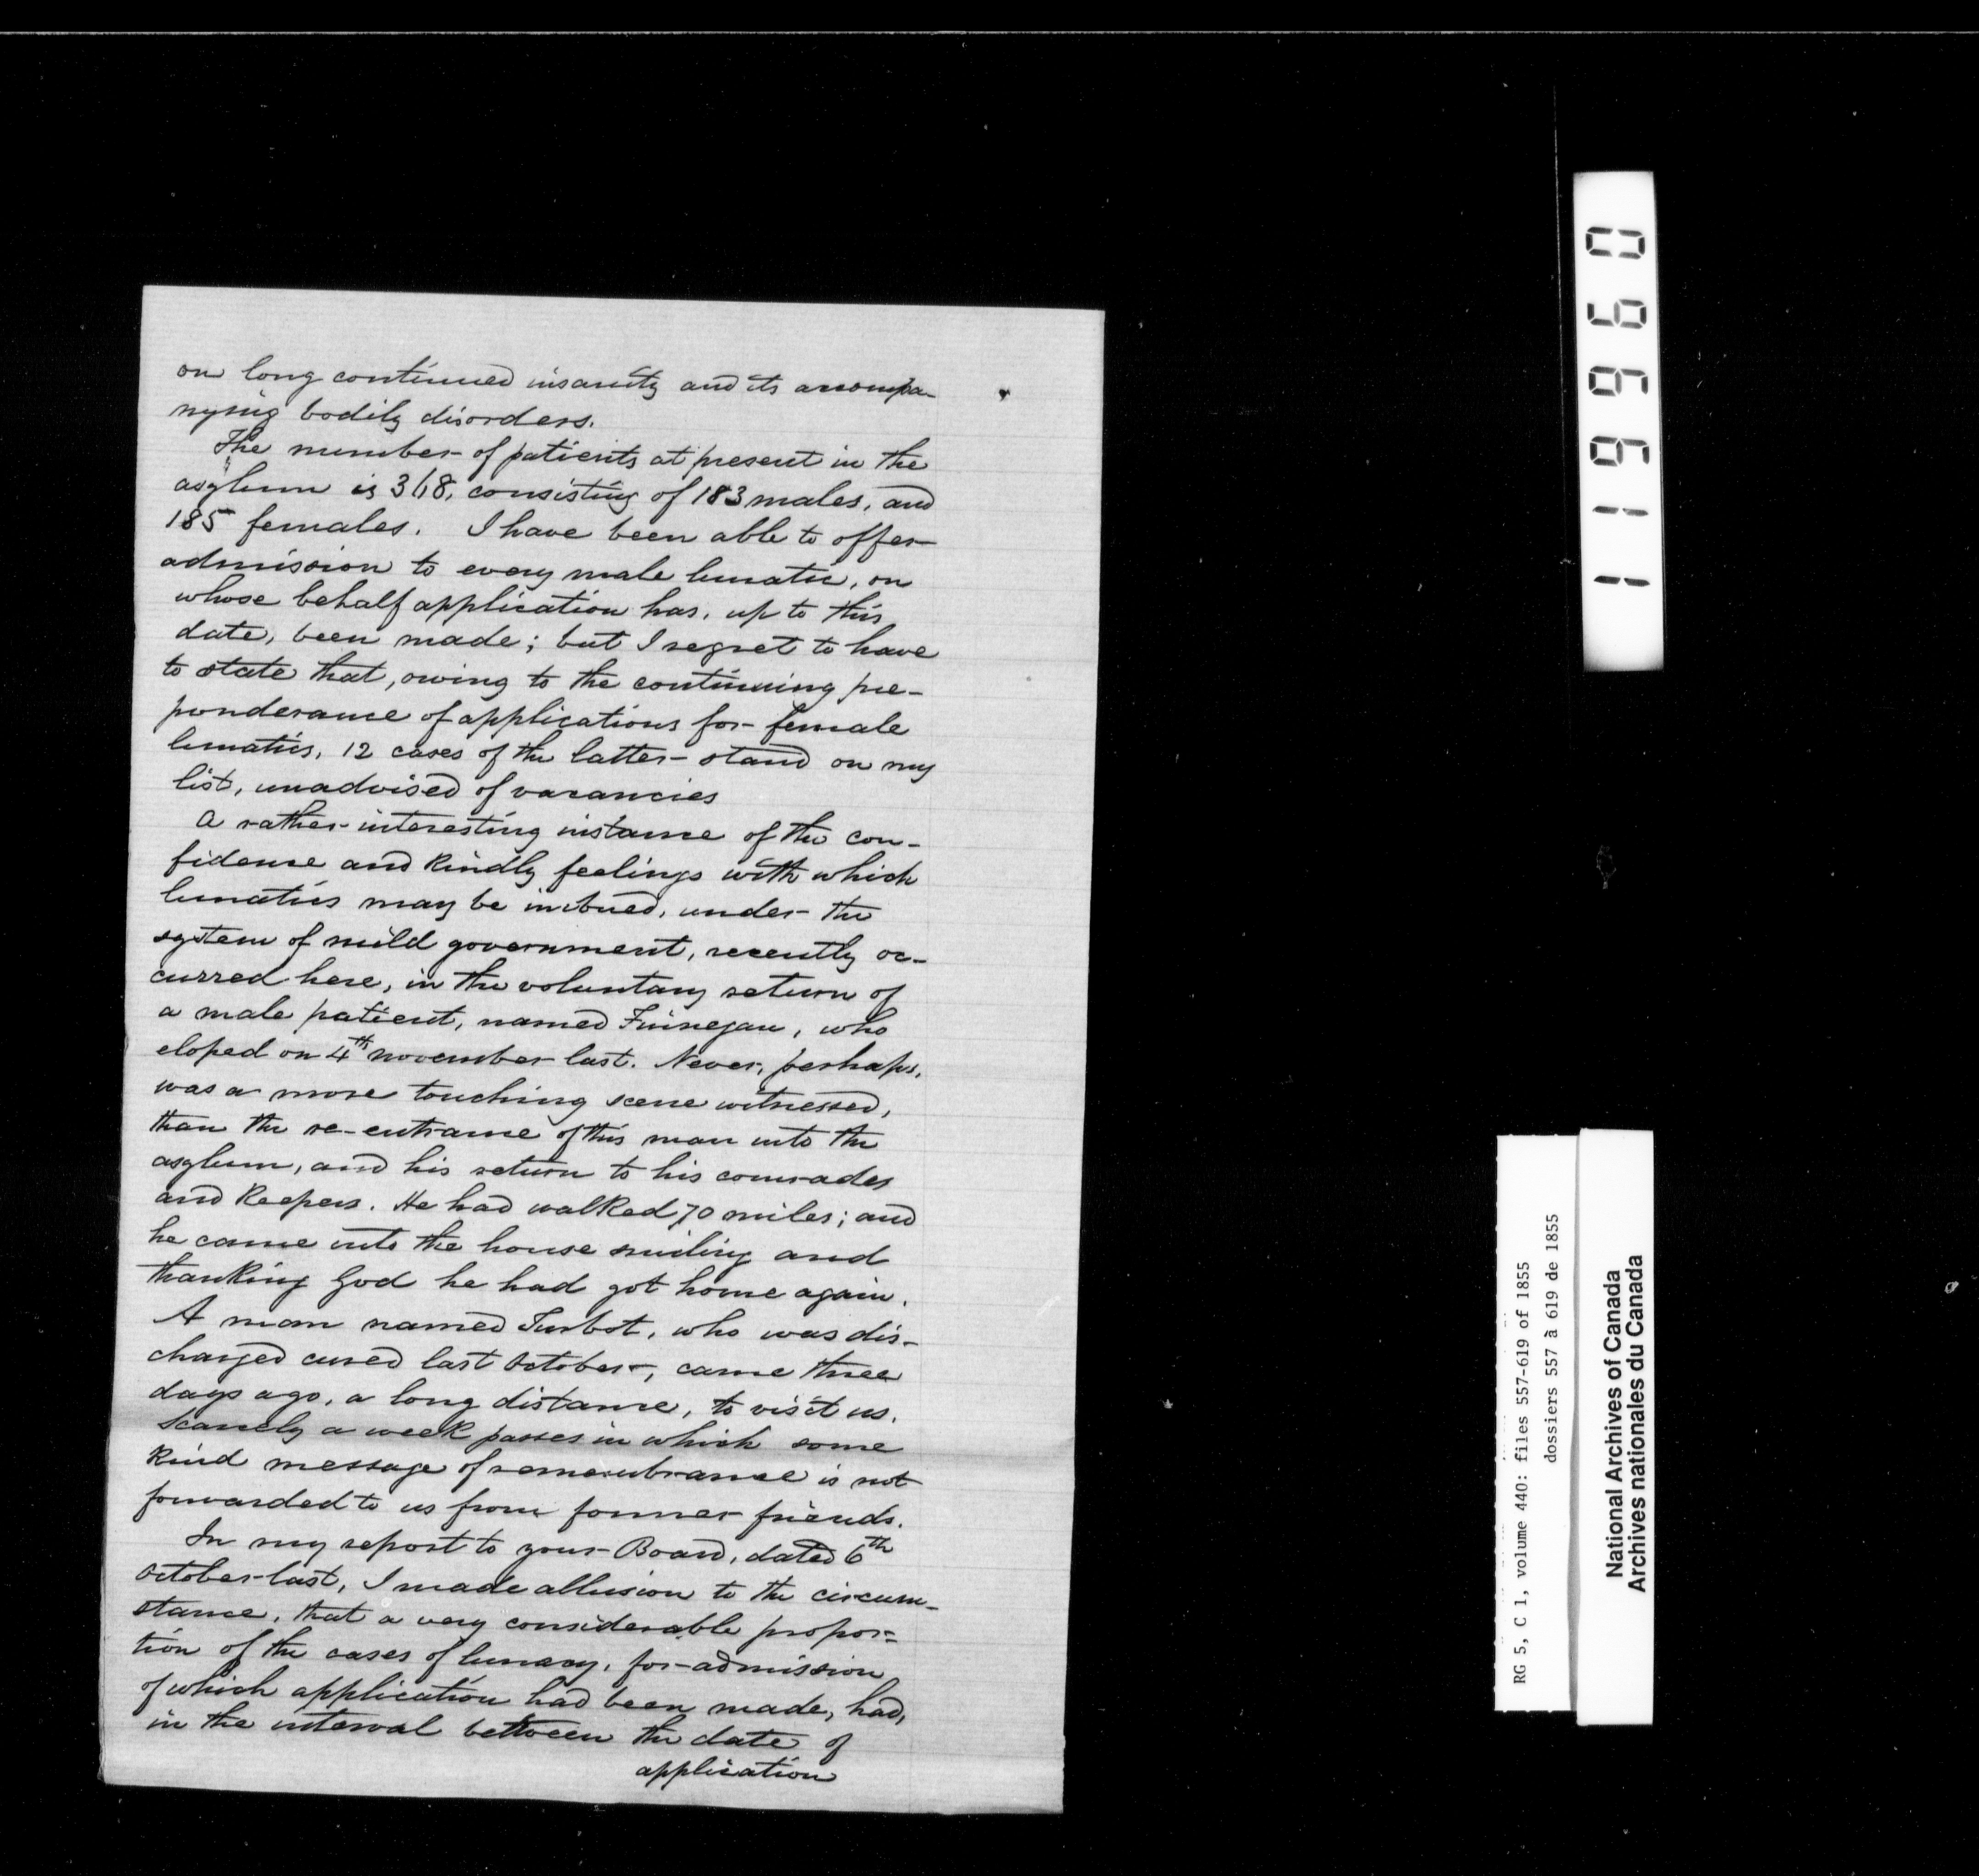 on long continued insanity and its accompa-
nying bodily disorders.
The number of patients at present in the
asylum is 368, consisting of 183 males, and
185 females. I have been able to offer
admission to every male lunatic, on
whose behalf application has, up to this
date, been made; but I regret to have
to state that, owing to the continuing pre-
ponderance of applications for female
lunatics, 12 cases of the latter stand on my
list, unadvised of vacancies
A rather interesting instance of the con-
fidence and kindly feelings with which
lunatics may be imbued, under the
system of mild government, recently oc-
curred here, in the voluntary return of
a male patient, named Finnegan, who
eloped on 4th november last. Never, perhaps,
was a more touching scene witnessed,
than the re-entrance of this man into the
asylum, and his return to his comrades
and Keepers. He had walked 70 miles; and
he came into the house smiling and
thanking God he had got home again.
A man named Turbot, who was dis-
charged cured last October, came three
days ago, a long distance, to visit us.
Scarcely a week passes in which some
kind message of remembrance is not
forwarded to us from former friends.
In my report to your Board, dated 6th
October last, I made allusion to the circum-
stance, that a very considerable propor=
tion of the cases of lunacy, for admission
of which application had been made, had,
in the interval between the date of
application
119960
RG 5, C 1, volume 440: files 557-619 of 1855
dossiers 557 à 619 de 1855
National Archives of Canada
Archives nationales du Canada